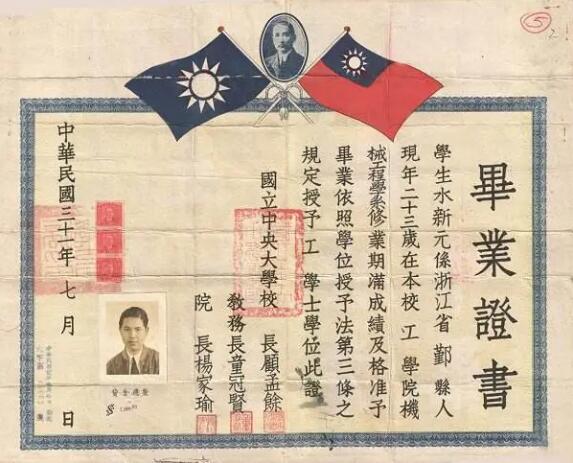 畢業證書
學生水新元係浙江省鄞縣人
現年二十三歲在本校工學院機
械工程學系修業期滿成績及格准予
畢業依照學位授予法第三條之
規定授予工學士學位此證
國立中央大學校長顧孟餘
教務長童冠賢
院長楊家瑜
中華民國三十一年七月日
5
2